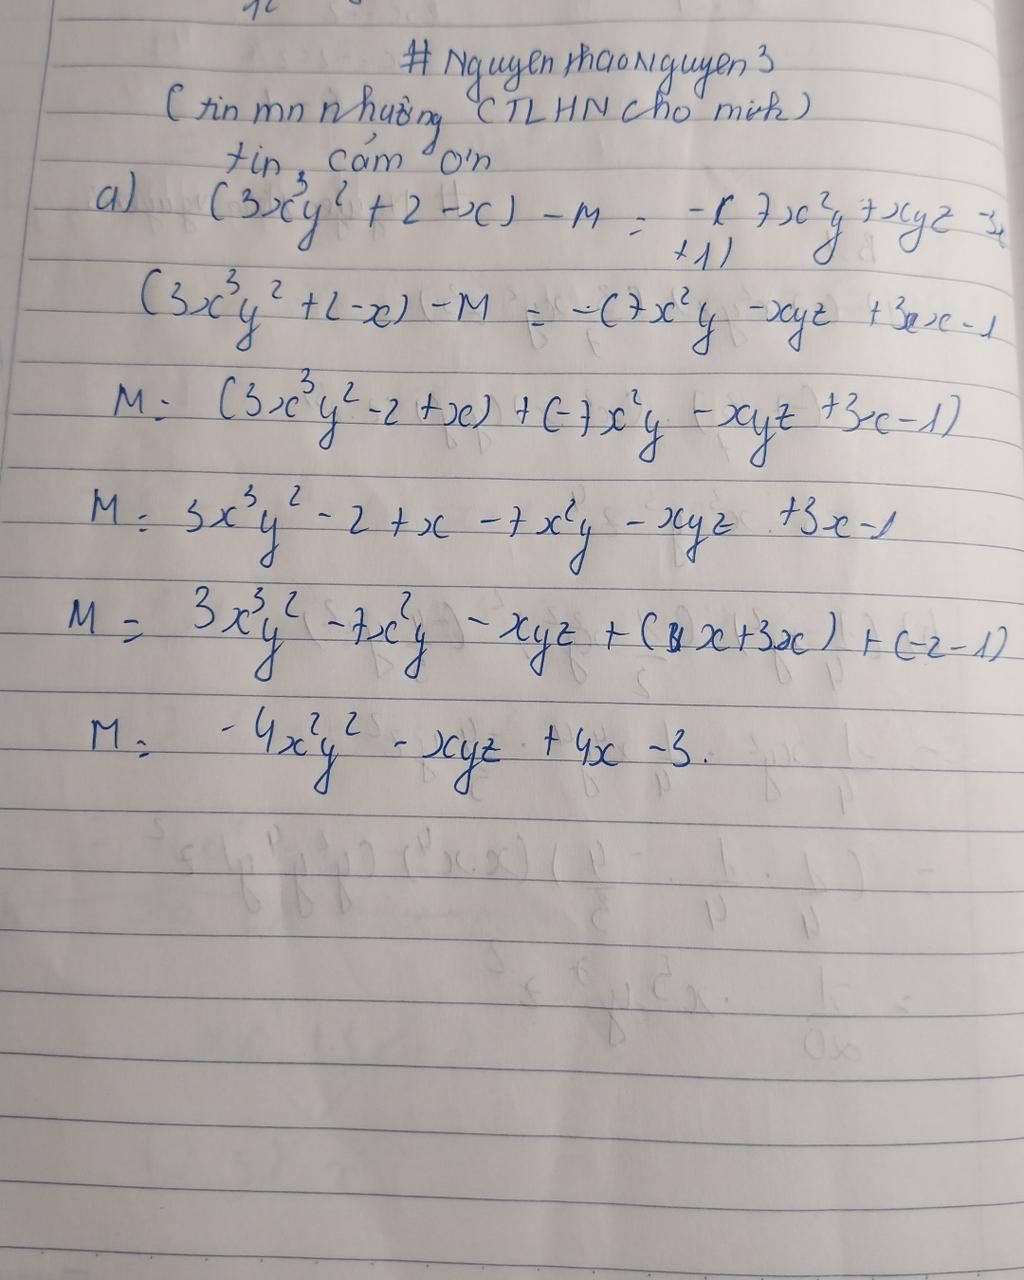 # NguyenthaoNguyen3
(tin mn nhường CTLHN cho mình)
tin, cám ơn
a) (3x³y² + 2 - x) - M = -( 7x²y + xyz - 3x
+1)
(3x³y² + 2 - x) - M = -(7x²y - xyz + 3x - 1
M = (3x³y² - 2 + x) + (-7x²y - xyz + 3x - 1)
M = 3x³y² - 2 + x - 7x²y - xyz + 3x - 1
M = 3x³y² - 7x²y - xyz + (x + 3x) + (-2 - 1)
M = -4x²y² - xyz + 4x - 3.